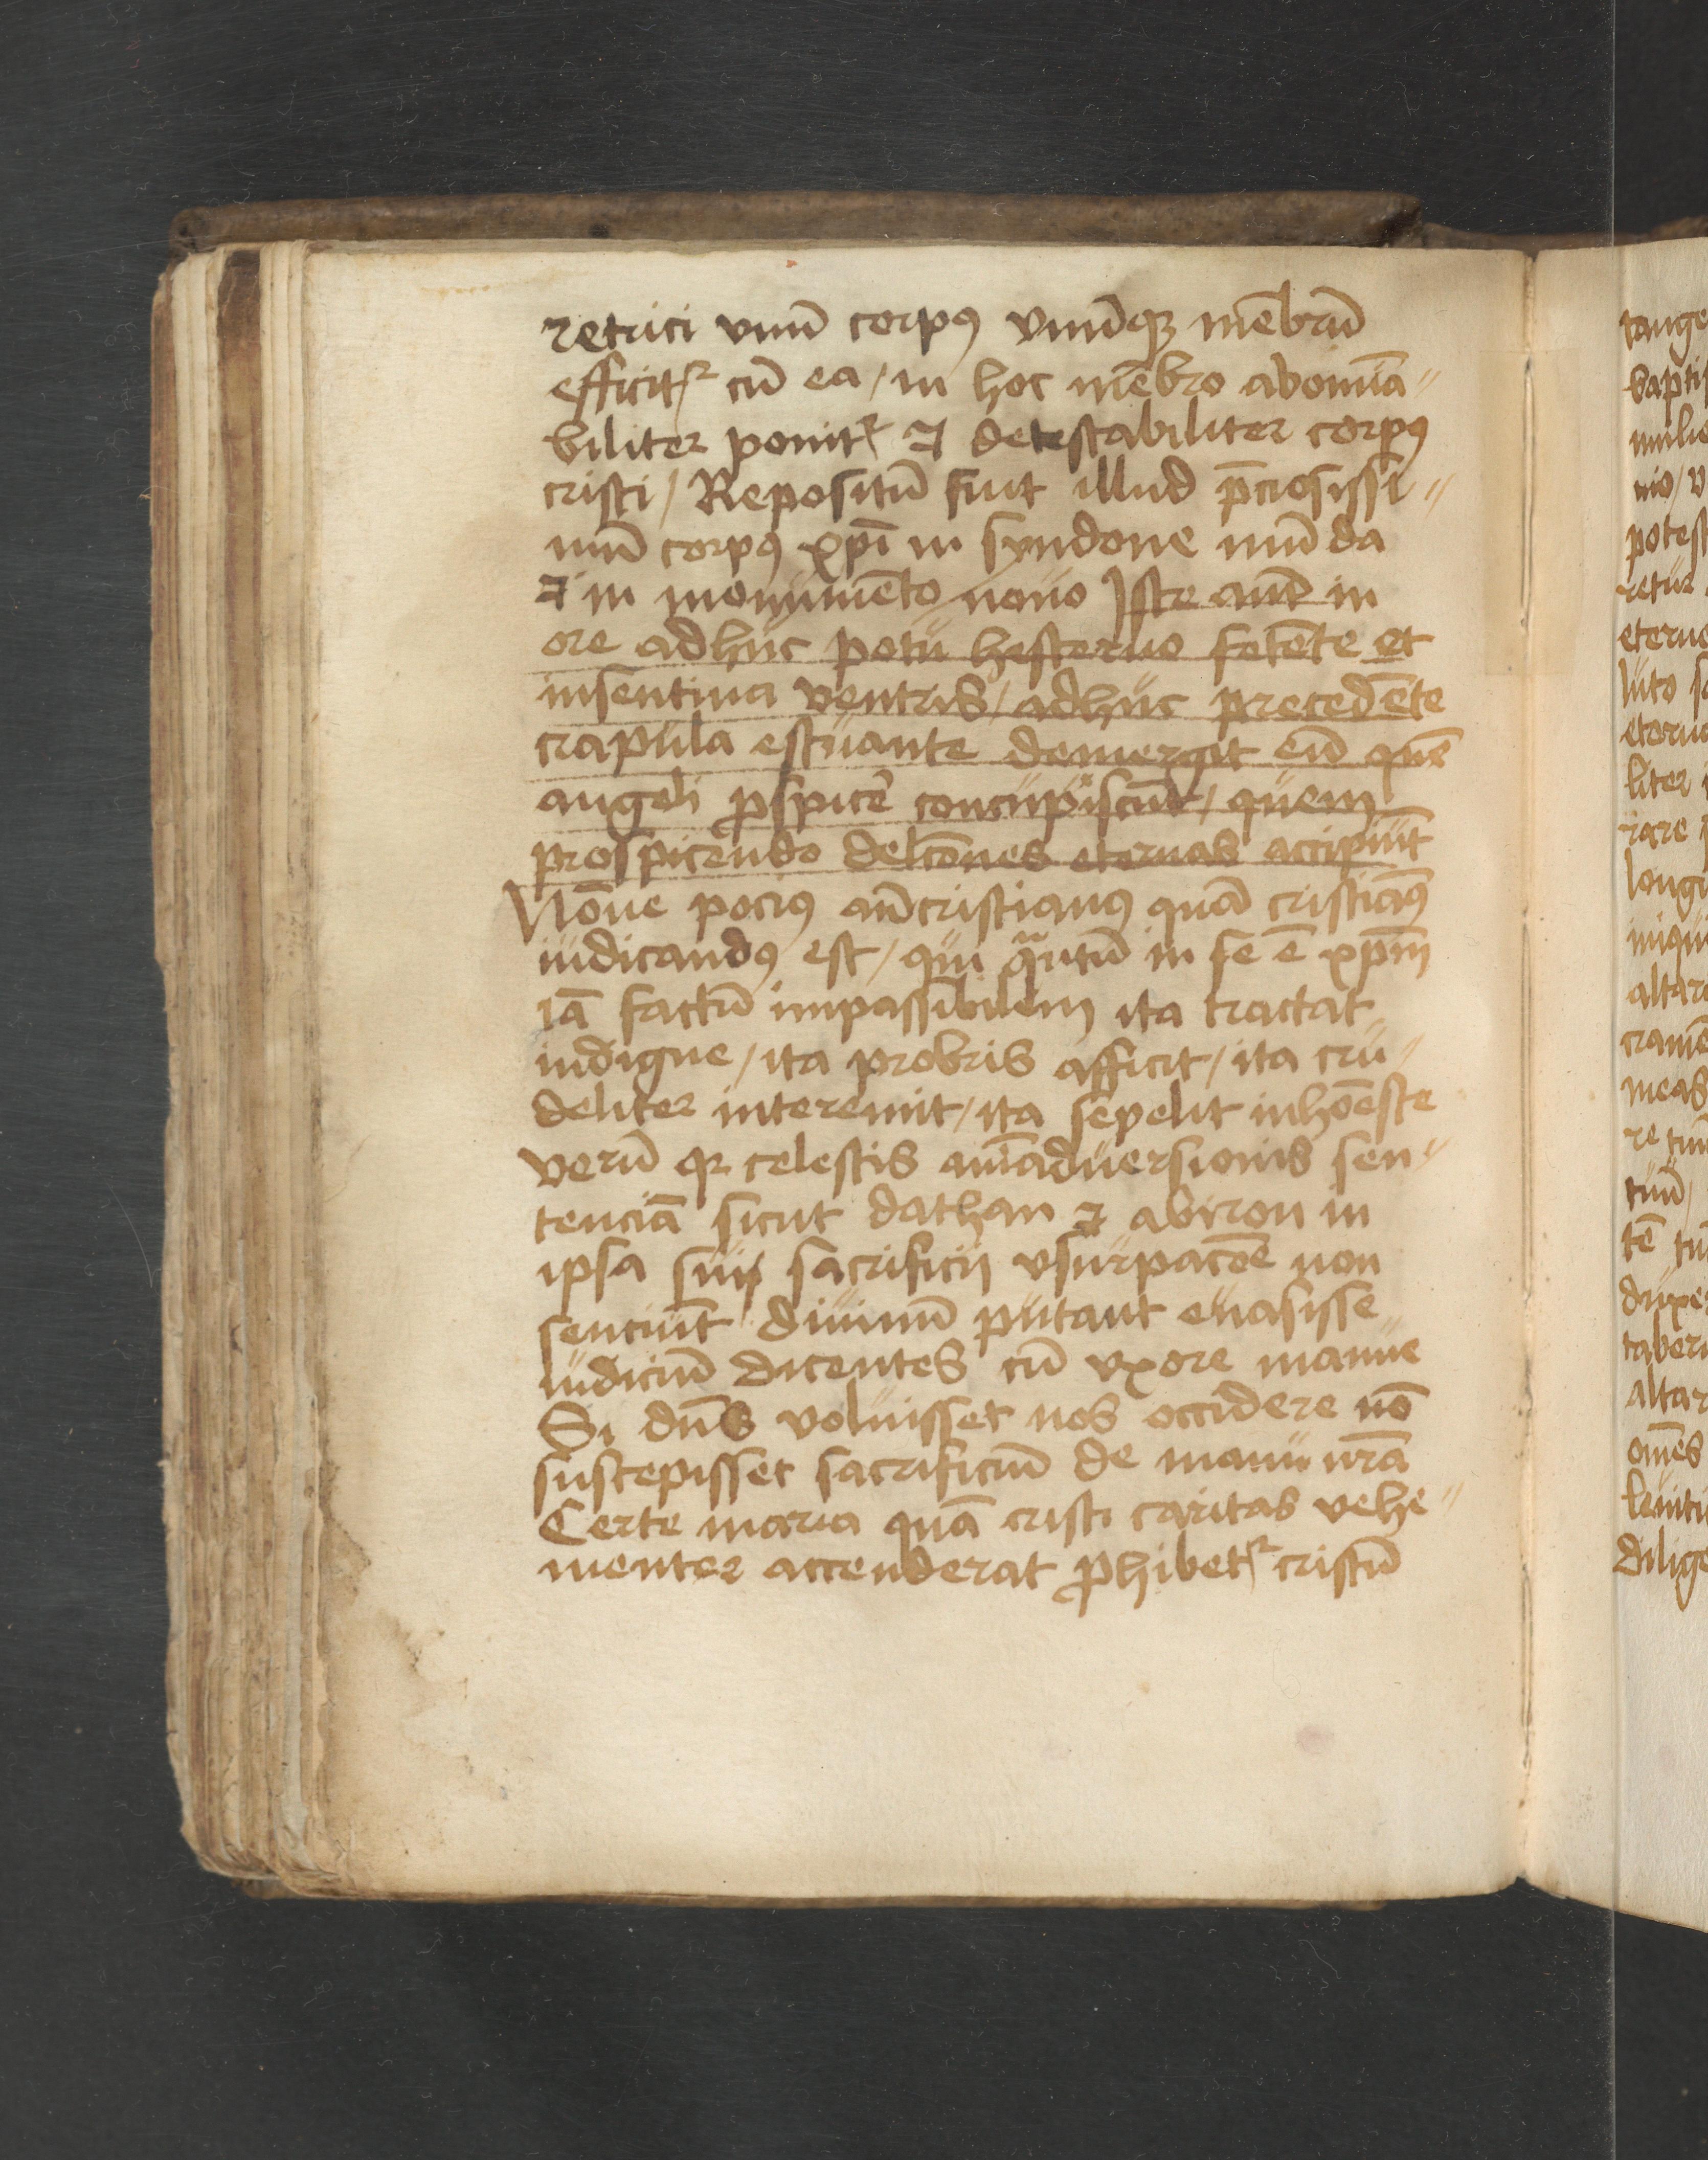 retrici vnū corpꝰ vnūqꝫ mēbrū
efficitr cū ea / in hoc mēbro abomīa〃
biliter ponitr ⁊ detestabiliter corpꝰ
cristi / Repositū fuit illud p̄ciosissi〃
mū corpꝰ xp̄i in syndone mūda
⁊ in monumēto nouo Iste aūt in
ore adhuc potu hesterno fetēte et
insentina ventris / adhuc precedēte
crapula estuante demergit eū quē
angeli ꝓspicē concupiscūt / quem
prospicendo delc̄ones eternas accipiūt
Nōne pociꝰ ant̄icristianꝰ quā cristiāꝰ
iudicandꝰ est / qui qᵃntū in se ē xp̄m
iā factū impassibilem ita tractat
indigne / ita probris afficit / ita cru〃
deliter interemit / ita sepelit inhoēste
verū qꝫ celestis aīaduersionis sen〃
tenciā sicut dathan ⁊ abiron in
ipsa sui sacrificij vsurpacōe non
senciūt diuinū putant euasisse
iudiciū dicentes cū vxore manue
Si dn̄s voluisset nos occidere nō
suscepisset sacrificiū de manu nr̄a
Certe maria quā cristi caritas vehe〃
menter accenderat ꝓhibetr cristū
tange
bapti
mulie
nio / v
potest
retur
eterno
luto s
eterna
liter i
rare
longi
iniqui
altar
cramē
meas
re tuū
tuū /
tē tu
duxe
taber
altar
omēs
leuiti
dilige